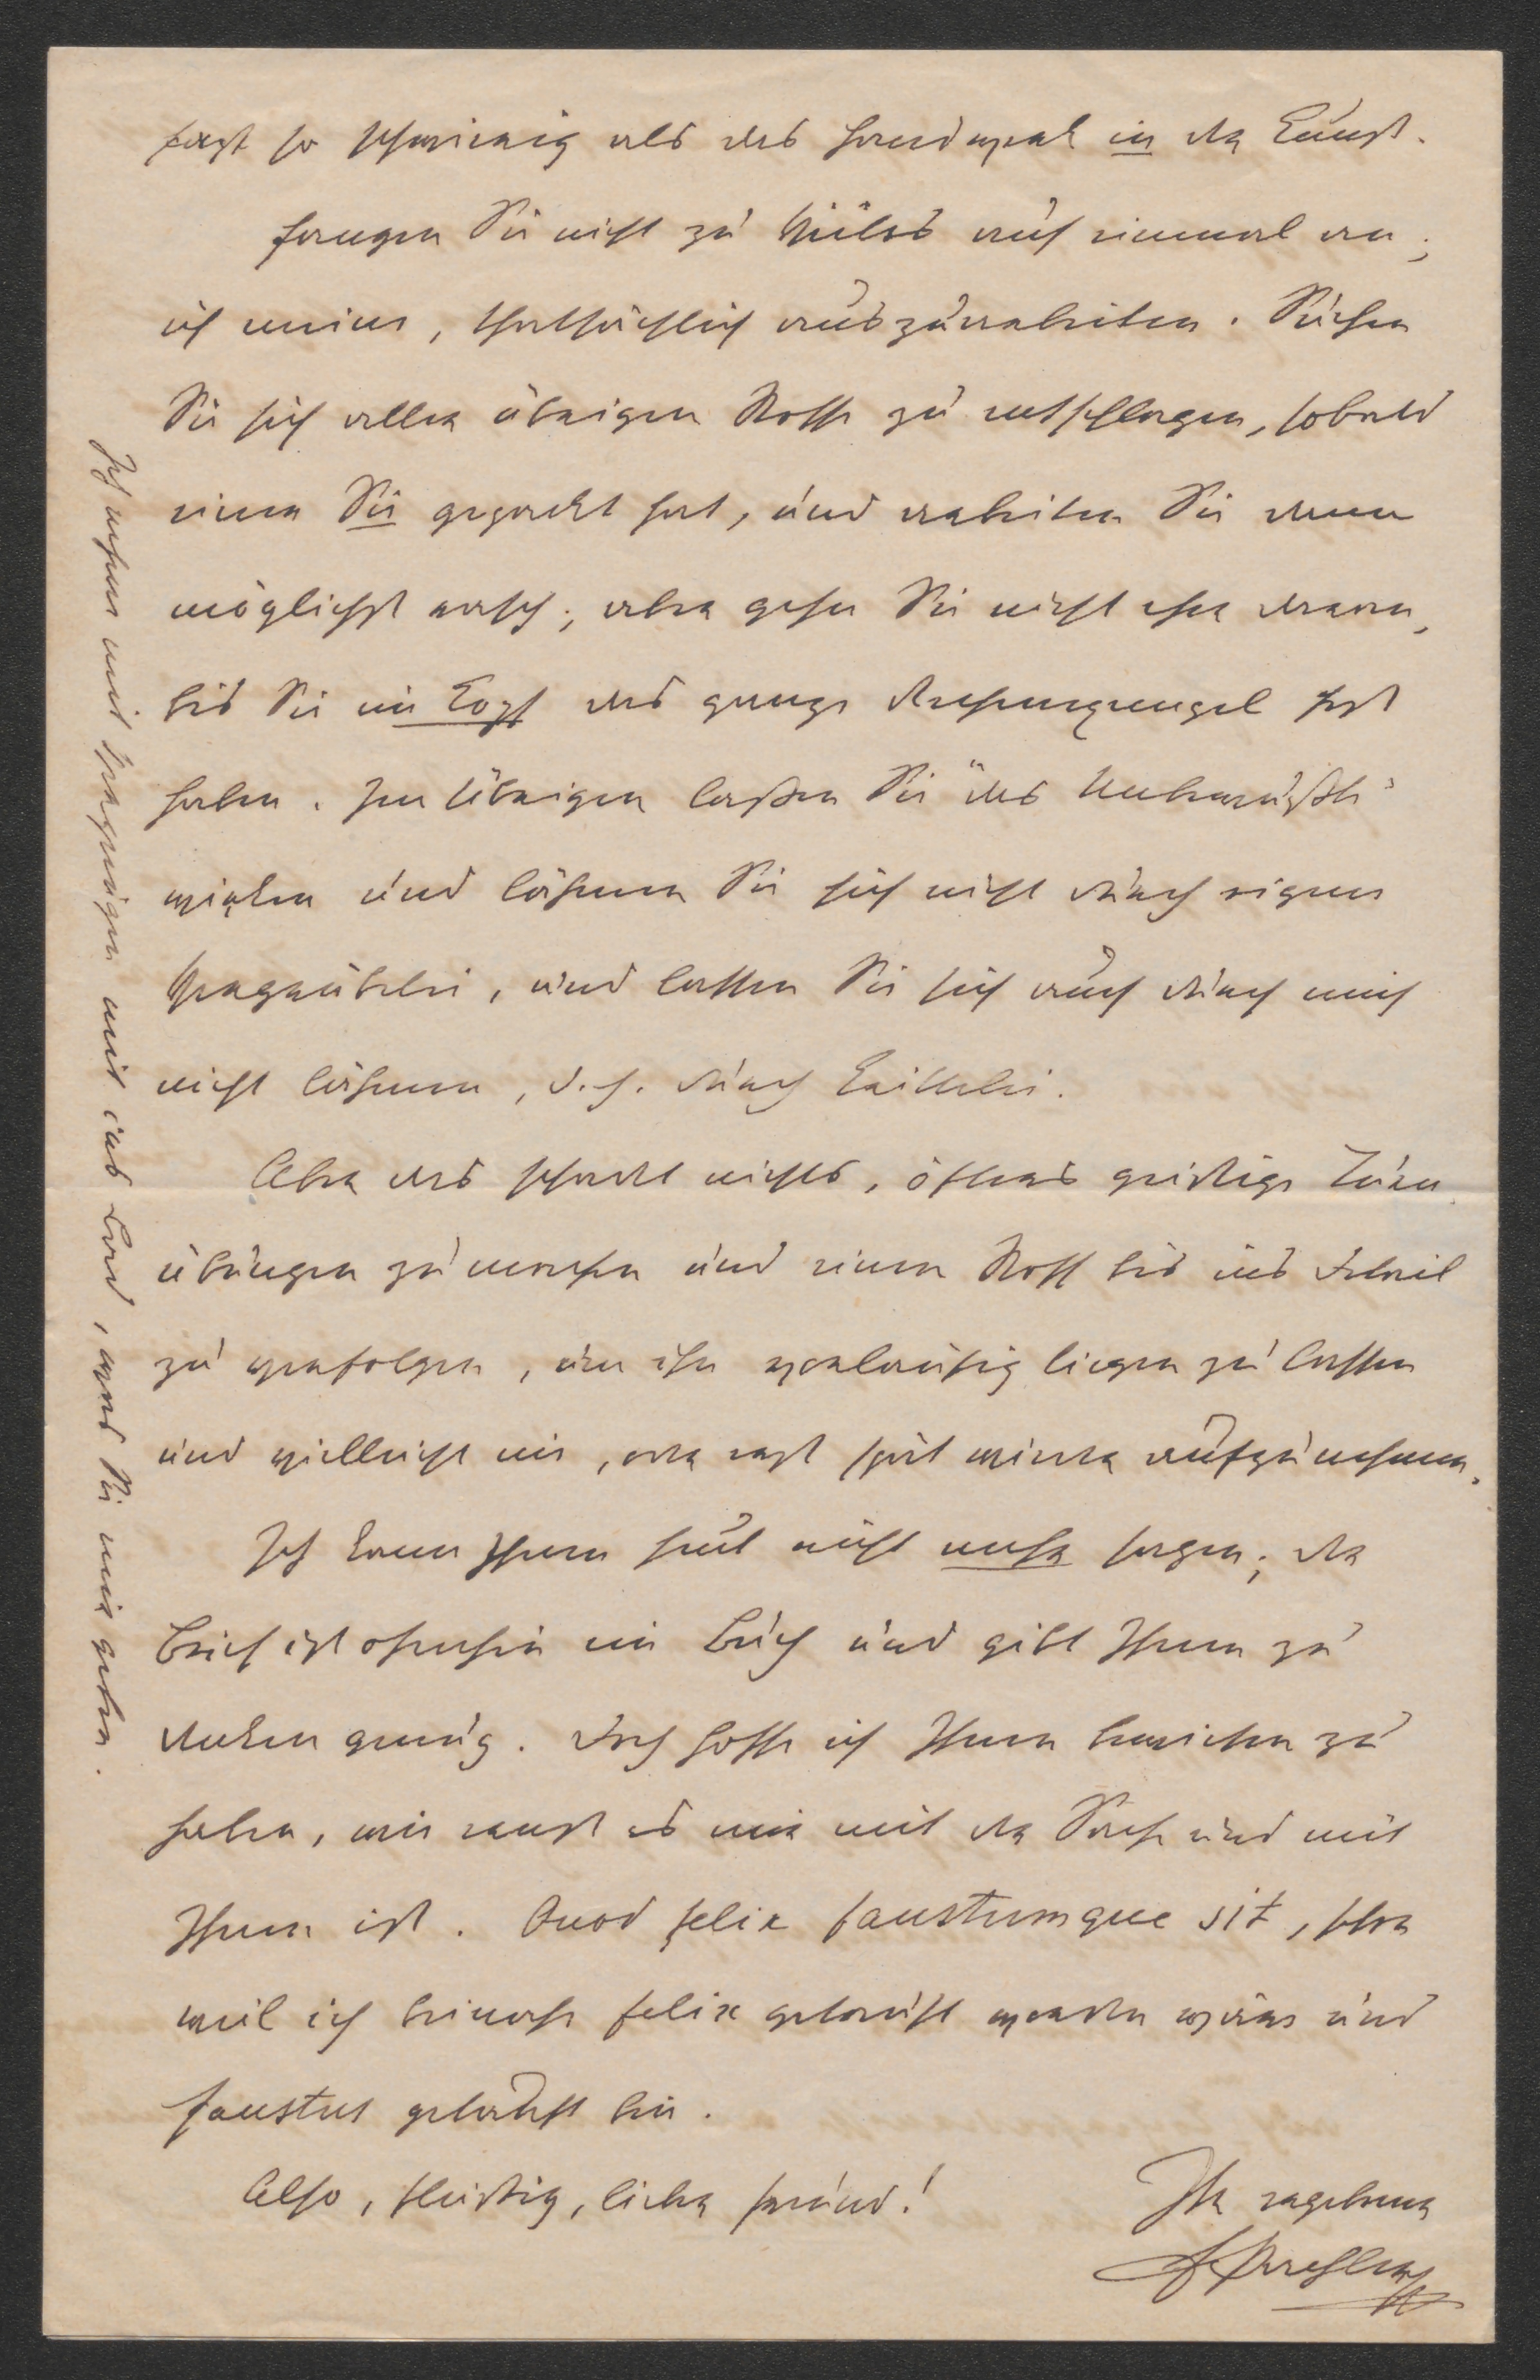 fast so schwierig als das Handwerk in der Kunst.
Fangen Sie nicht zu Vieles auf einmal an;
ich meine, thatsächlich auszuarbeiten. Suchen
Sie sich aller übrigen Stoffe zu entschlagen, sobald
einer Sie gepackt hat, und arbeiten Sie dann
möglichst rasch; aber gehen Sie nicht eher daran,
bis Sie im Kopf das ganze fest
haben. Im Übrigen lassen Sie "das Unbewußte"
wirken und lähmen Sie sich nicht durch eigene
Vergrübelei, und lassen Sie sich auch durch mich
nicht lähmen, d. h. durch Krittelei.
Aber das schadet nichts, öfters geistige Turn
übungen zu machen und einen Stoff bis ins Detail
zu verfolgen, um ihn vorläufig liegen zu lassen
und vielleicht nie, oder erst spät wieder aufzunehmen.
Ich kann Ihnen heut nicht mehr sagen; der
Brief ist ohnehin ein Buch und gibt Ihnen zu
denken genug. Doch hoffe ich Ihnen bewiesen zu
haben, wie ernst es mir mit der Sache und mit
Ihnen ist. Quod felix faustumque sit, schon
weil ich beinahe Felix getauft worden wäre und
Faustus getauft bin.
Also, fleißig, lieber Freund!
Ihr ergebener
Ich nehme mit Vergnügen mit ins Bad, was Sie mir geben.